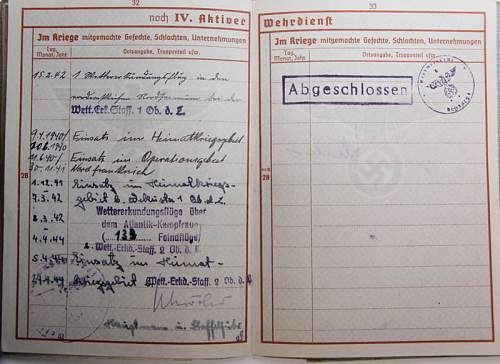 32
noch IV. Aktiver
Im Kriege mitgemachte Gefechte, Schlachten, Unternehmungen
Tag, Monat, Jahr
Ortsangabe, Truppenteil usw.
15.2.42 1 Wettererkundungsflug in den
bei der
Wett.Erk.Staff. 1 Ob.d.L.
9.1.1940/ Einsatz im Heimatkriegsgebiet
Einsatz im Operationsgebiet
30.11.41 Nordfrankreich
28
1.12.41 Einsatz im Heimatkriegs-
7.3.42 gebiet b. Wekusta 1 Ob.d.L.
Wettererkundungsflüge über
8.3.42 dem Atlantik-Kampfraum
4.4.44 (... 132 ... Feindflüge)
b. Wett.-Erkd.-Staff. 2 Ob. d. L.
5.4.44 Einsatz im Heimat-
kriegsgebiet (Wett.-Erkd.-Staff. 2 Ob. d. L.
Hauptmann u. Staffelführer
33
Wehrdienst
Im Kriege mitgemachte Gefechte, Schlachten, Unternehmungen
Tag, Monat, Jahr
Ortsangabe, Truppenteil usw.
Abgeschlossen
28